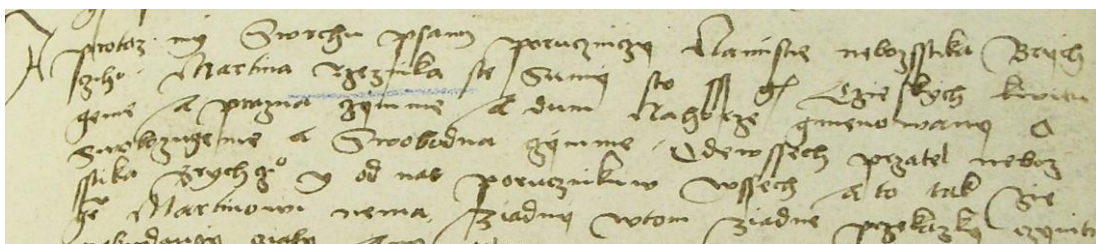 A protoz my Swrchu psany poruczniczy Namistie nebozsstika Brych
czyho Martina rzeznika sse Sumy sto ss gr Czeskych kwitu
geme A prazna czynime A dum Nahorze gmenowany O
Swobozugeme A Swobodna czynime Odewssech przatel neboz
sstika Brychcyo y od nas porucznikuw wssech A to tak Zie
Martinowi nema ziadny wtom ziadne przekazky czyniti